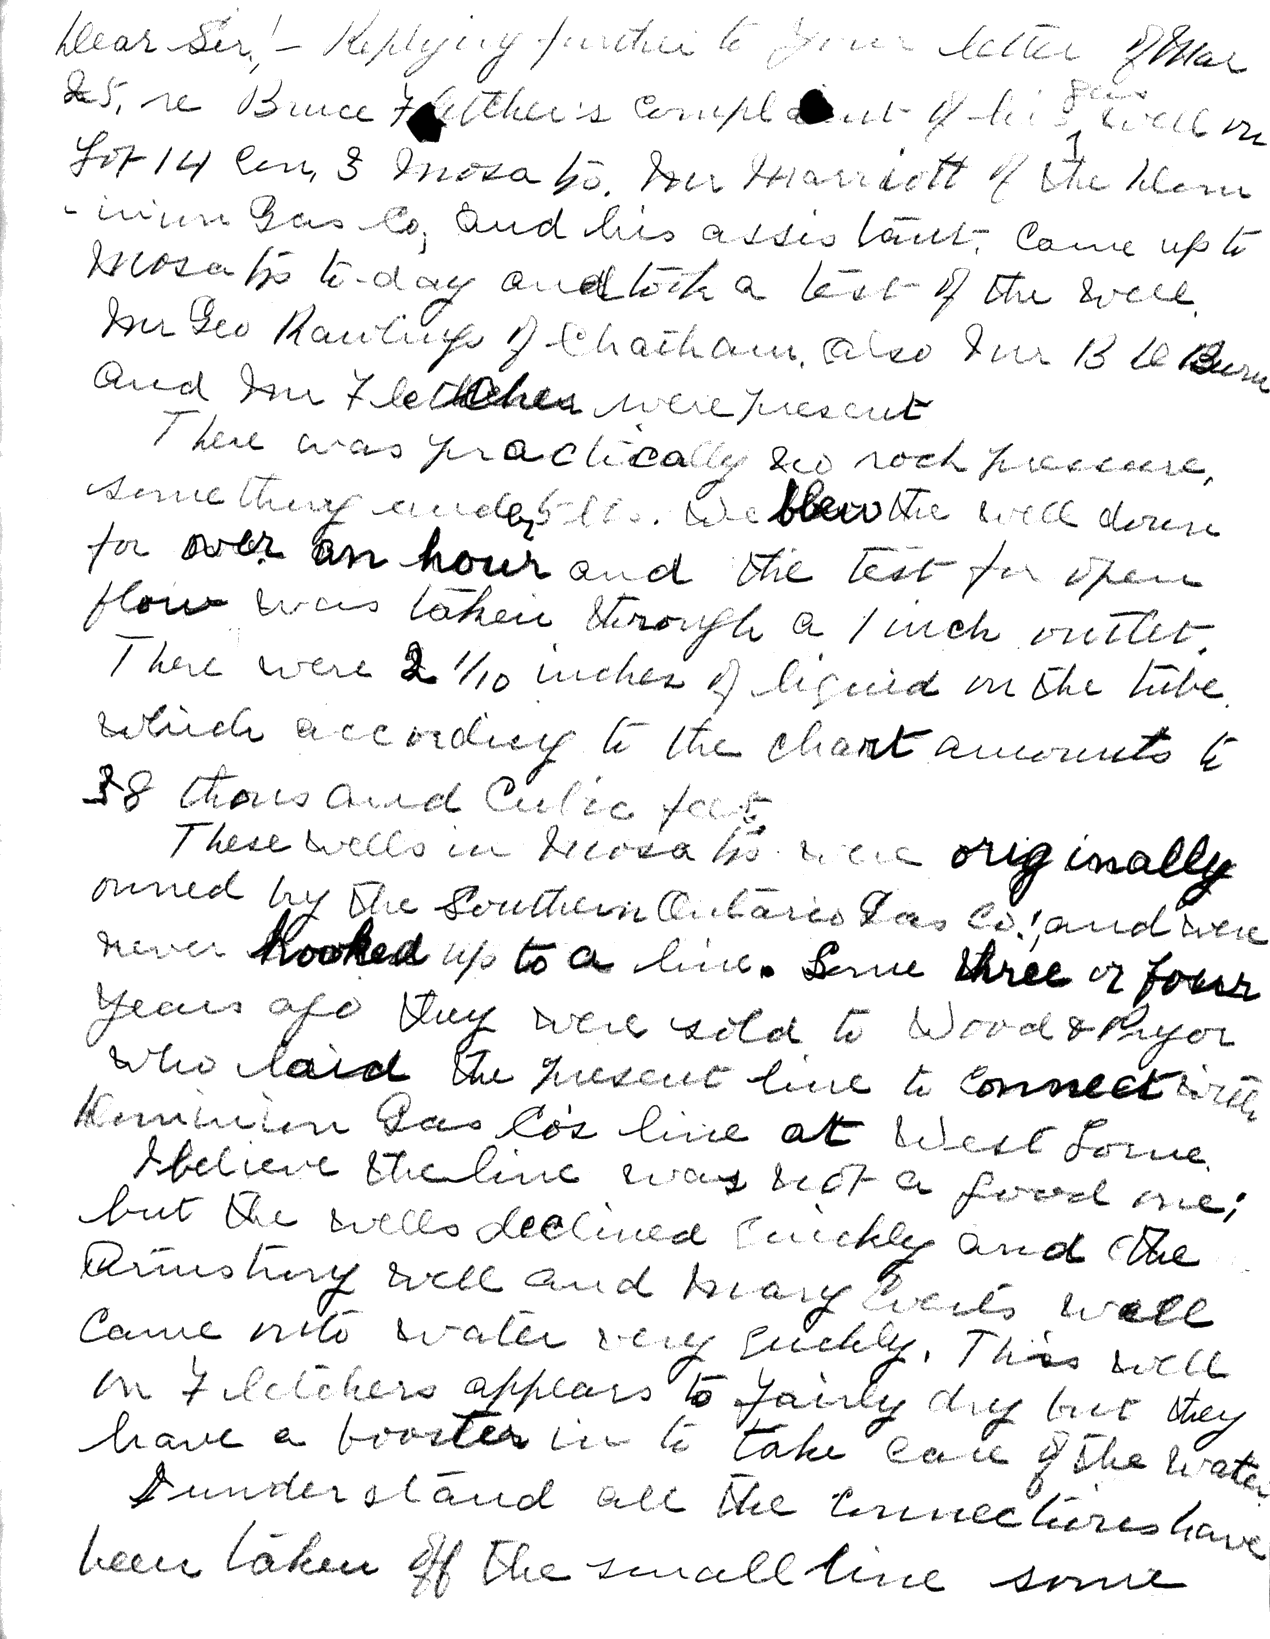 Dear Sir,! - Replying further to your letter of Mar
25, re Bruce Fletcher's complaint of his gas well on
Lot 14 Con, 3 Mosa tp. Mr Marriott of the Dom
-inion Gas Co, and his assistant, came up to
Mosa tp to-day and took a test of the well.
Mr Geo Rawlings of Chatham, also Mr B D Burn
and Mr Fletcher were present
There was practically no rock pressure,
something under 5 lbs. We blew the well down
for over an hour and the test for open
flow was taken through a 1 inch outlet.
There were 2 1/10 inches of liquid on the tube
which according to the chart amounts to
38 thousand Cubic feet.
These wells in Mosa tp were originally
owned by the Southern Ontario Gas Co!, and were
never hooked up to a line. Some three or four
years ago they were sold to Wood & Pryor
who laid the present line to connect with
Dominion Gas Co's line at West Lorne.
I believe the line was not a good one;
but the wells declined quickly and the
Armstrong well and Mary well
came into water very quickly. This well
on Fletchers appears to fairly dry but they
have a booster in to take care of the water.
I understand all the connections have
been taken off the small line some